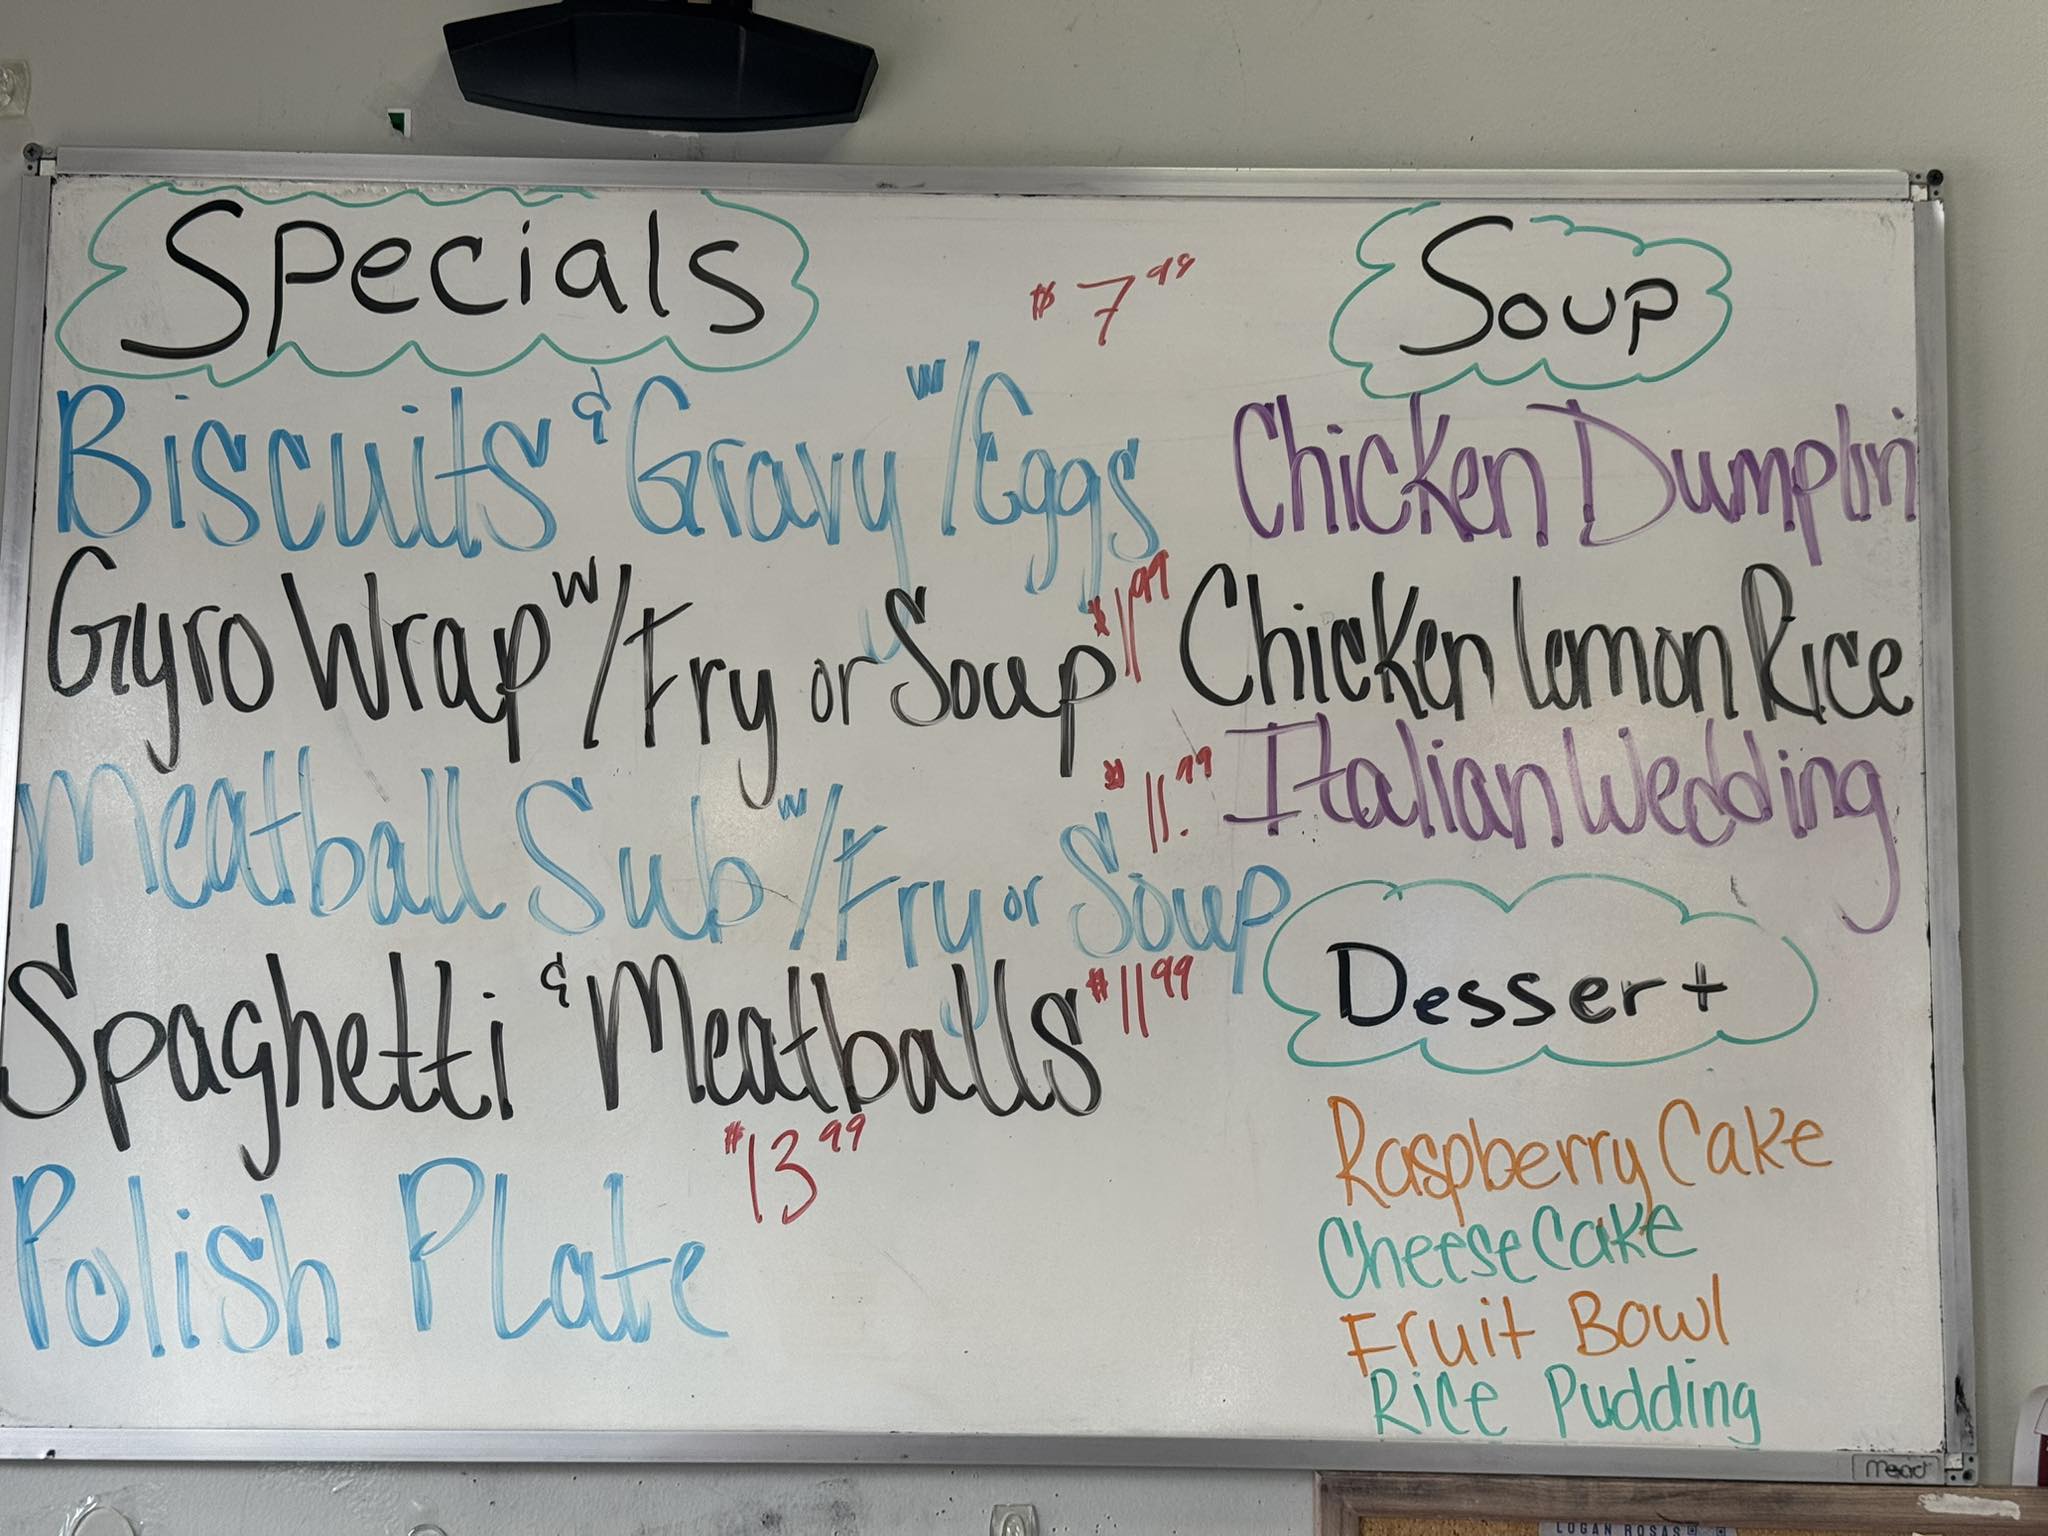 Specials
$7.99
Biscuits & Gravy w/Eggs
Gyro Wrap w/Fry or Soup $11.99
Meatball Sub w/Fry or Soup $11.99
Spaghetti & Meatballs $11.99
Polish Plate $13.99
Soup
Chicken Dumplin'
Chicken Lemon Rice
Italian Wedding
Dessert
Raspberry Cake
CheeseCake
Fruit Bowl
Rice Pudding
Mead
LOGAN ROSAS